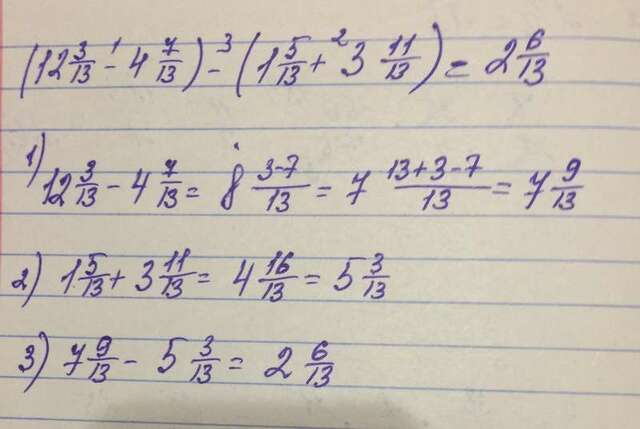 (12 3/13 -¹ 4 7/13) -³ (1 5/13 +² 3 11/13) = 2 6/13
1) 12 3/13 - 4 7/13 = 8 (3-7)/13 = 7 (13+3-7)/13 = 7 9/13
2) 1 5/13 + 3 11/13 = 4 16/13 = 5 3/13
3) 7 9/13 - 5 3/13 = 2 6/13